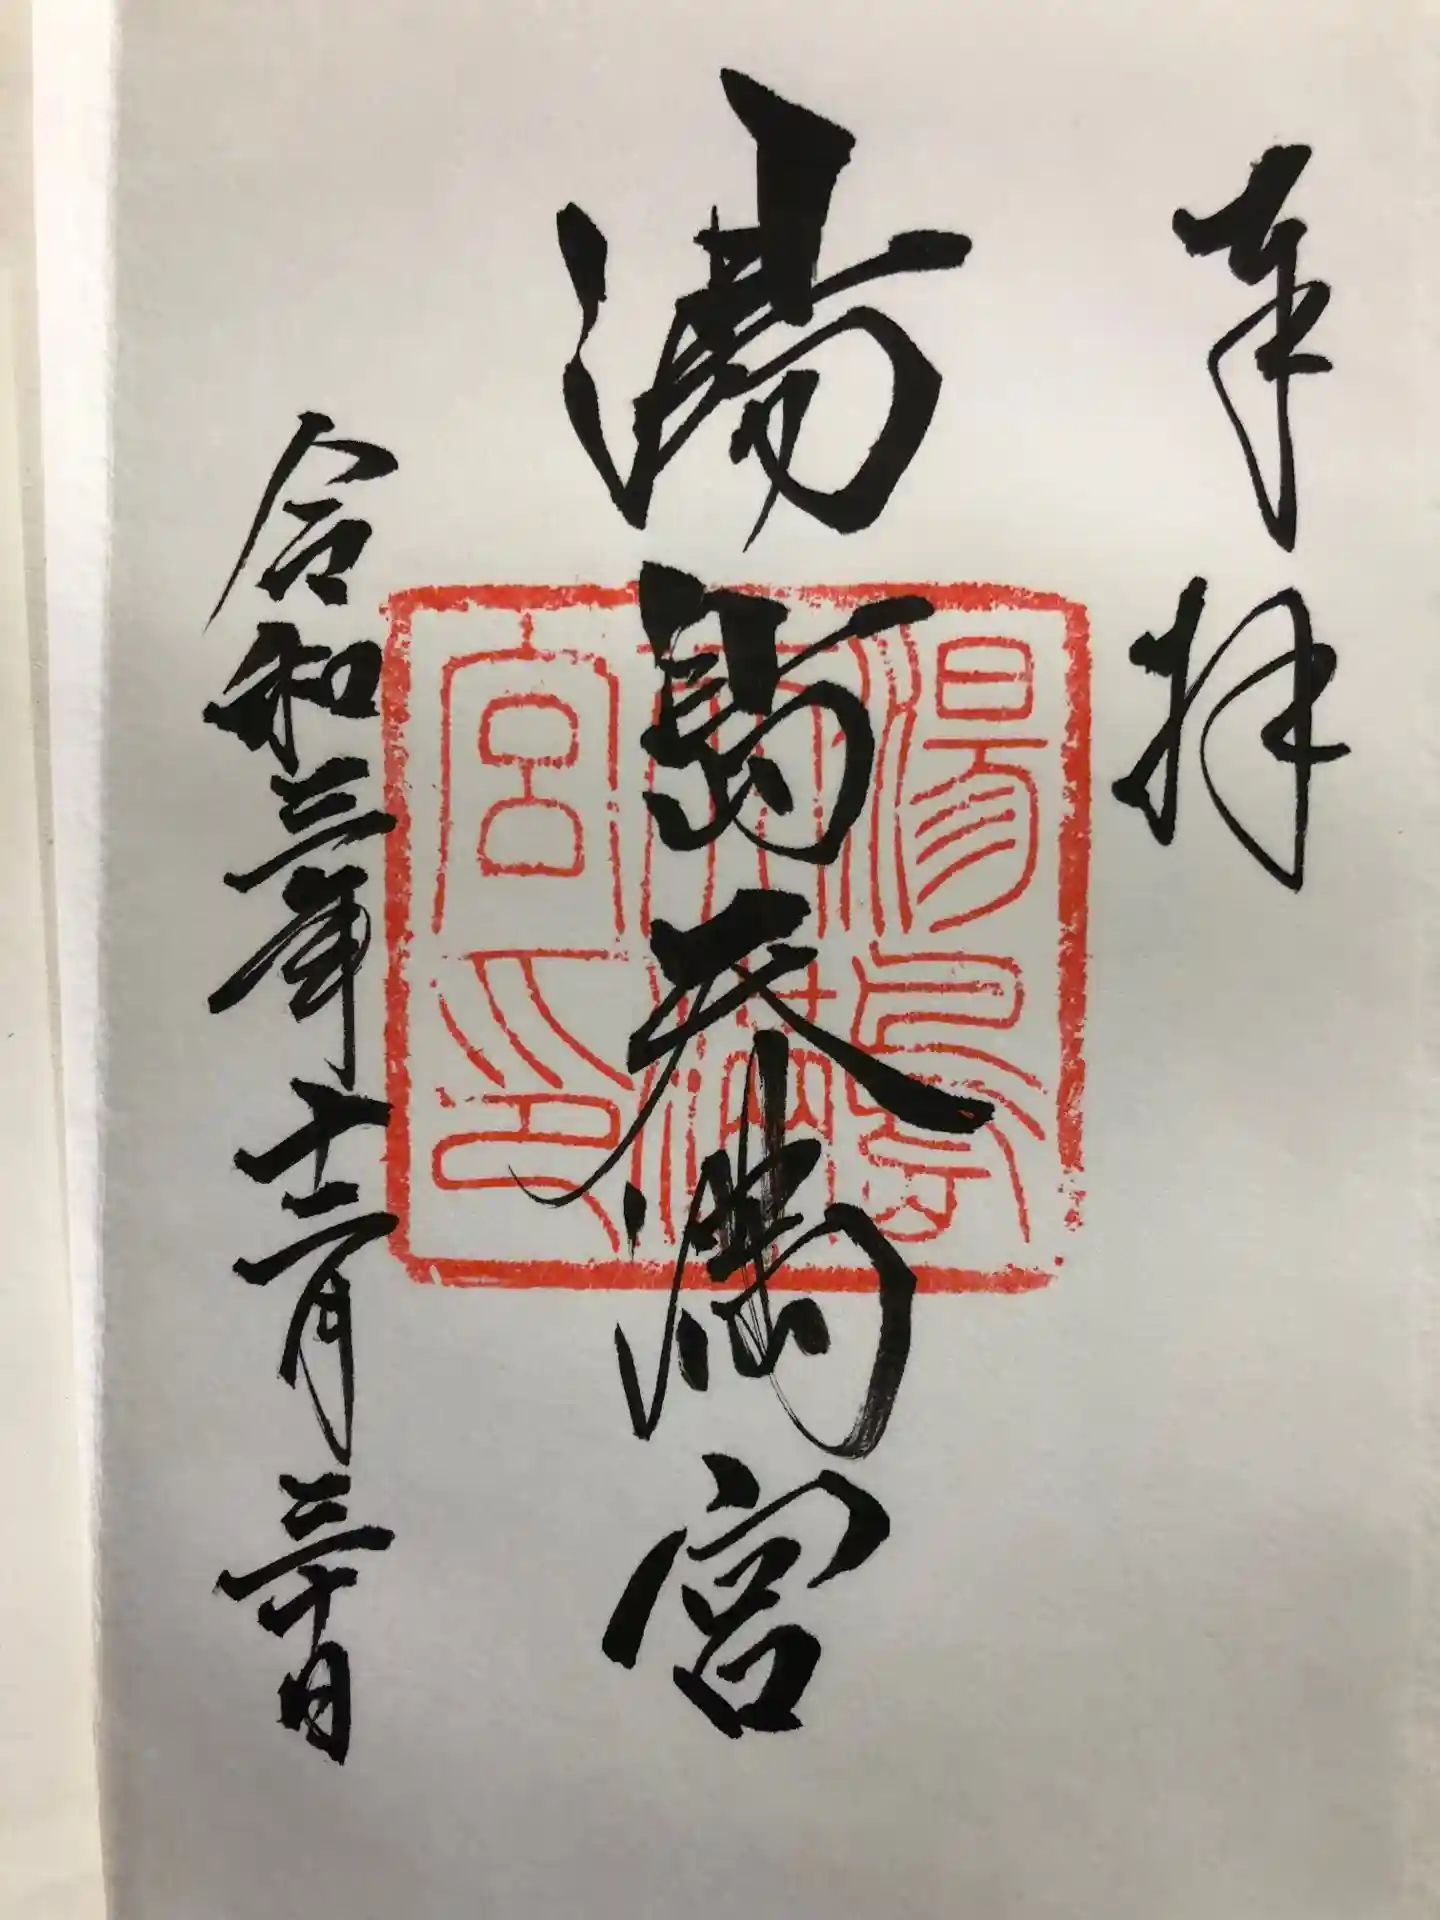 奉拝
湯島天満宮
令和三年十二月三十日
湯島
天満
宮印